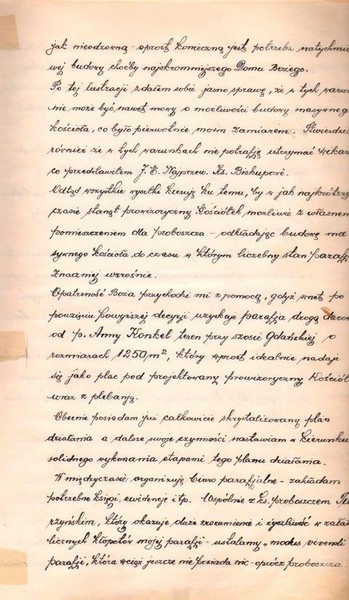 jak nieodzowną - wprost konieczną jest potrzeba natychmia
wej budowy choćby najskromniejszego Domu Bożego.
Po tej lustracji zdałem sobie jasno sprawę, że w tych warun
nie może być nawet mowy o możliwości budowy masywnego
kościoła, co było pierwotnie moim zamiarem.
również że w tych warunkach nie potrafię utrzymać wikar
co przedstawiłem J. E. Najprzew. Ks. Biskupowi.
Odtąd wszystkie wysiłki kieruję ku temu, by w jak najkrótszy
czasie stanął prowizoryczny kościółek możliwie z własnem
pomieszczeniem dla proboszcza - odkładając budowę ma
sywnego kościoła do czasu w którym liczebny stan parafji
znacznie wzrośnie.
Opatrzność Boża przychodzi mi z pomocą, gdyż wnet po
powzięciu powyższej decyzji uzyskuje parafja drogą darow
od p. Anny Konkel teren przy szosie Gdańskiej o
rozmiarach 1250 m², który wprost idealnie nadaje
się jako plac pod projektowany prowizoryczny kościół
wraz z plebanją.
Obecnie posiadam już całkowicie skrystalizowany plan
działania a dalsze swoje czynności nastawiam w kierunku
solidnego wykonania etapami tego planu działania.
W międzyczasie organizuję biuro parafjalne - zakładam
potrzebne księgi, ewidencje itp. Wspólnie z ks. proboszczem
rzyńskim, który okazuje duże zrozumienie i życzliwość w
licznych kłopotów mojej parafji - ustalamy „modus vivendi
parafji, która wciąż jeszcze nie posiada nic - oprócz proboszcza.